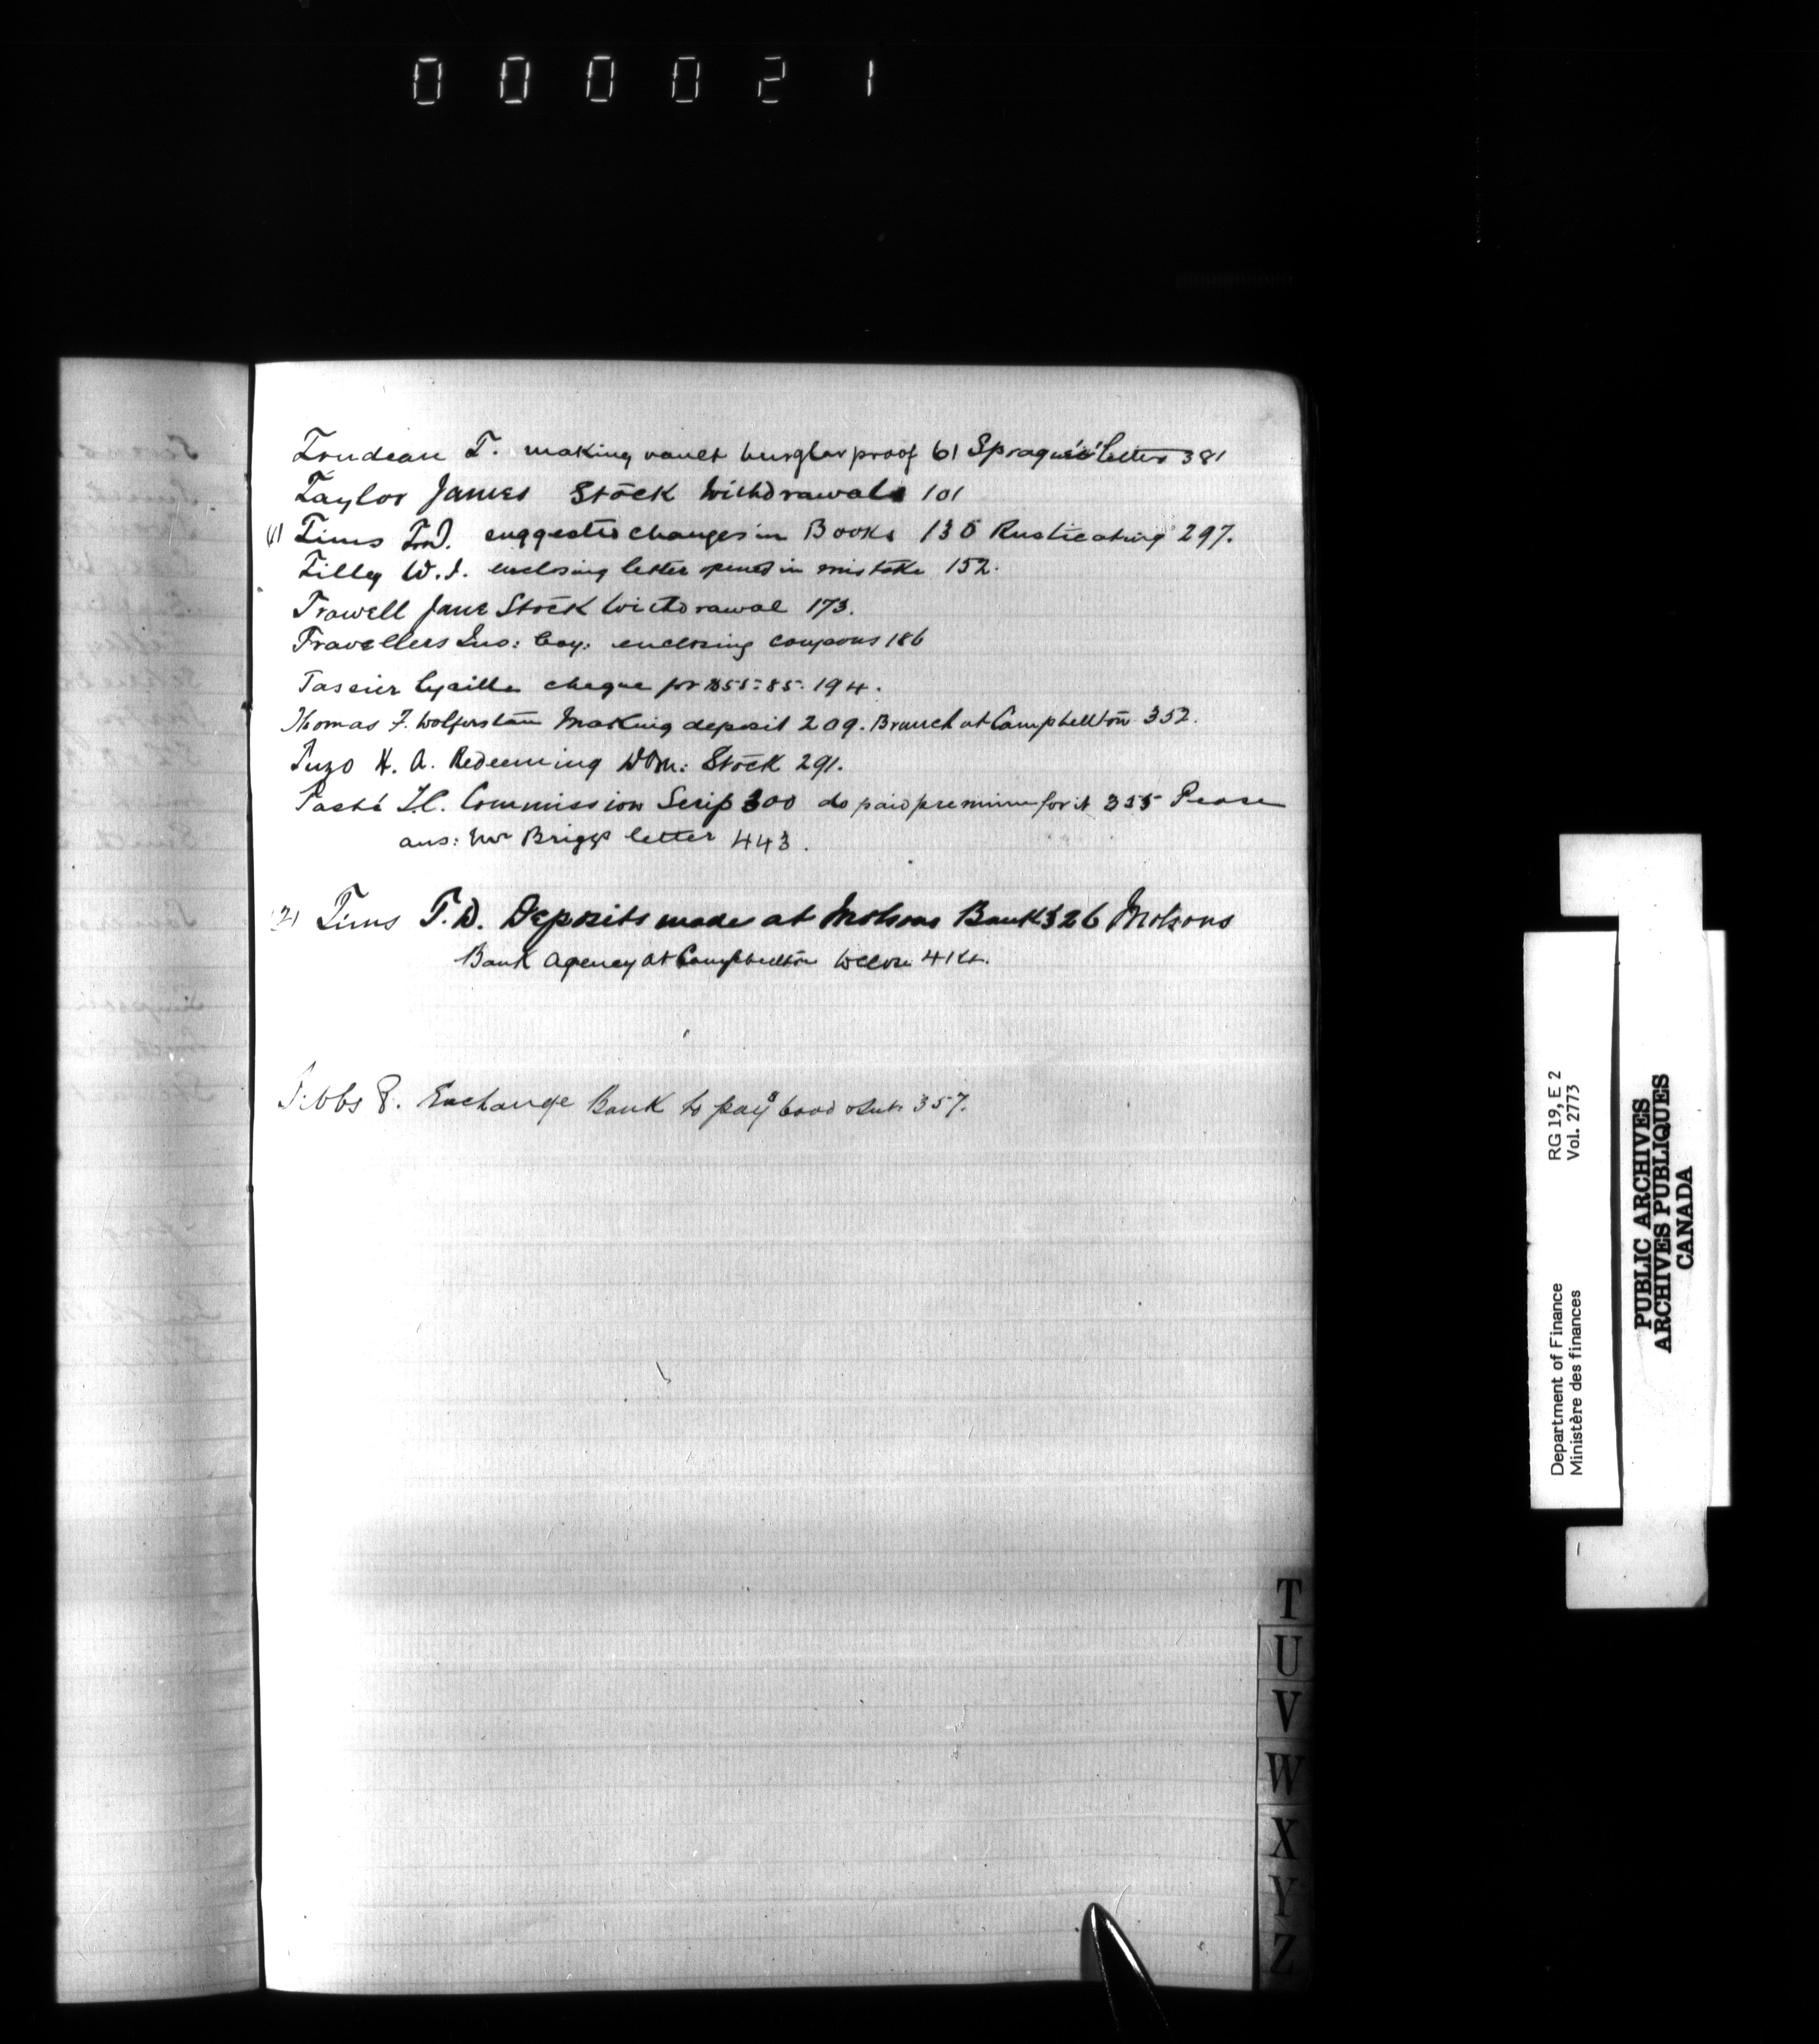 000021
Trudeau T. making vault burglar proof 61 Sprague's letter 381
Taylor James Stock Withdrawals 101
(1) Tims T.D. suggested changes in Books 130 Rusticating 297.
Tilley W.J. enclosing letter opened in mistake 152.
Trowell Jane Stock Withdrawal 173.
Travellers Ins: Coy: enclosing coupons 186
Tassier Cyrille cheque for 85. 194.
Thomas F. Wolferstan Making deposit 209. Branch at Campbellton 352.
Tuzo H. A. Redeeming Dom: Stock 291.
Taché J.C. Commission Scrip 300 do paid premium for it 355 Pease
ans: Mr Briggs letter 443.
(2) Tims T.D. Deposits made at Molsons Bank 326 Molsons
Bank Agency at Campbellton 414.
Tibbs E. Exchange Bank to pay 357.
T
U
V
W
X
Y
Z
Department of Finance RG 19, E 2
Ministère des finances Vol. 2773
PUBLIC ARCHIVES
ARCHIVES PUBLIQUES
CANADA